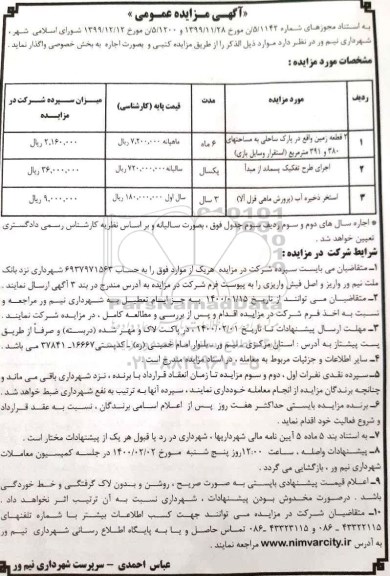 «آگهی مزایده عمومی»
به استناد مجوزهای شماره ۵/۱۱۴۲/ن مورخ ۱۳۹۹/۱۱/۲۸ و ۵/۱۲۰۰/ن مورخ ۱۳۹۹/۱۲/۱۲ شورای اسلامی شهر،
شهرداری نیم ور در نظر دارد موارد ذیل الذکر را از طریق مزایده کتبی و بصورت اجاره به بخش خصوصی واگذار نماید.
مشخصات مورد مزایده:
ردیف مورد مزایده مدت قیمت پایه (کارشناسی) میزان سپرده شرکت در مزایده
۱ ۲ قطعه زمین واقع در پارک ساحلی به مساحتهای ۳۸۰ و ۳۹۱ مترمربع (استقرار وسایل بازی) ۶ ماه ماهیانه ۷,۲۰۰,۰۰۰ ریال ۲,۱۶۰,۰۰۰ ریال
۲ اجرای طرح تفکیک پسماند از مبدأ یکسال سالیانه ۷۲۰,۰۰۰,۰۰۰ ریال ۳۶,۰۰۰,۰۰۰ ریال
۳ استخر ذخیره آب (پرورش ماهی قزل آلا) ۳ سال سال اول ۱۸۰,۰۰۰,۰۰۰ ریال ۹,۰۰۰,۰۰۰ ریال
* اجاره سال های دوم و سوم ردیف سوم جدول فوق، بصورت سالیانه و بر اساس نظریه کارشناس رسمی دادگستری
تعیین خواهد شد.
شرایط شرکت در مزایده:
۱- متقاضیان می بایست سپرده شرکت در مزایده هریک از موارد فوق را به حساب ۶۹۳۷۹۷۱۵۶۳ شهرداری نزد بانک
ملت نیم ور واریز و اصل فیش واریزی را به پیوست فرم شرکت در مزایده به آدرس مندرج در بند ۳ آگهی ارسال نمایند.
۲- متقاضیان می توانند از تاریخ ۱۴۰۰/۰۱/۱۵ به جز ایام تعطیل به شهرداری نیم ور مراجعه و
نسبت به اخذ فرم شرکت در مزایده اقدام و پس از بررسی و مطالعه کامل، در مزایده شرکت نمایند.
۳- مهلت ارسال پیشنهادات تا تاریخ ۱۴۰۰/۰۲/۰۱، در پاکت لاک و مهر شده (دربسته) و صرفاً از طریق
پست پیشتاز به آدرس: استان مرکزی، نیم ور، بلوار امام خمینی (ره) با کدپستی ۱۶۶۶۷-۳۷۸۴۱ می باشد.
۴- سایر اطلاعات و جزئیات مربوط به معامله در اسناد مزایده مندرج است.
۵- سپرده نقدی نفرات اول، دوم و سوم مزایده تا زمان انعقاد قرارداد با برنده، نزد شهرداری باقی می ماند و
چنانچه برندگان مزایده از انجام معامله خودداری نمایند، سپرده آنها به ترتیب به نفع شهرداری ضبط خواهد شد.
۶- برنده مزایده بایستی حداکثر هفت روز پس از اعلام اسامی برندگان، نسبت به عقد قرارداد
و شروع فعالیت خود اقدام نماید.
۷- به استناد بند ۵ ماده ۵ آیین نامه مالی شهرداریها، شهرداری در رد یا قبول هر یک از پیشنهادات مختار است.
۸- پیشنهادات واصله، ساعت ۱۲:۰۰ روز پنج شنبه مورخ ۱۴۰۰/۰۲/۰۲ در جلسه کمیسیون معاملات
شهرداری نیم ور، بازگشایی می گردد.
۹- اعلام قیمت پیشنهادی بایستی به صورت صریح، روشن و بدون لاک گرفتگی و خط خوردگی
باشد. درصورت مخدوش بودن پیشنهادات، شهرداری نسبت به آن ترتیب اثر نخواهد داد.
۱۰- متقاضیان شرکت در مزایده می توانند جهت کسب اطلاعات بیشتر با شماره تلفنهای
۴۳۳۲۲۱۱۵-۰۸۶ و ۴۳۳۲۳۱۱۵-۰۸۶ تماس حاصل و یا به پایگاه اطلاع رسانی شهرداری نیم ور
به آدرس www.nimvarcity.ir مراجعه نمایند.
عباس احمدی - سرپرست شهرداری نیم ور